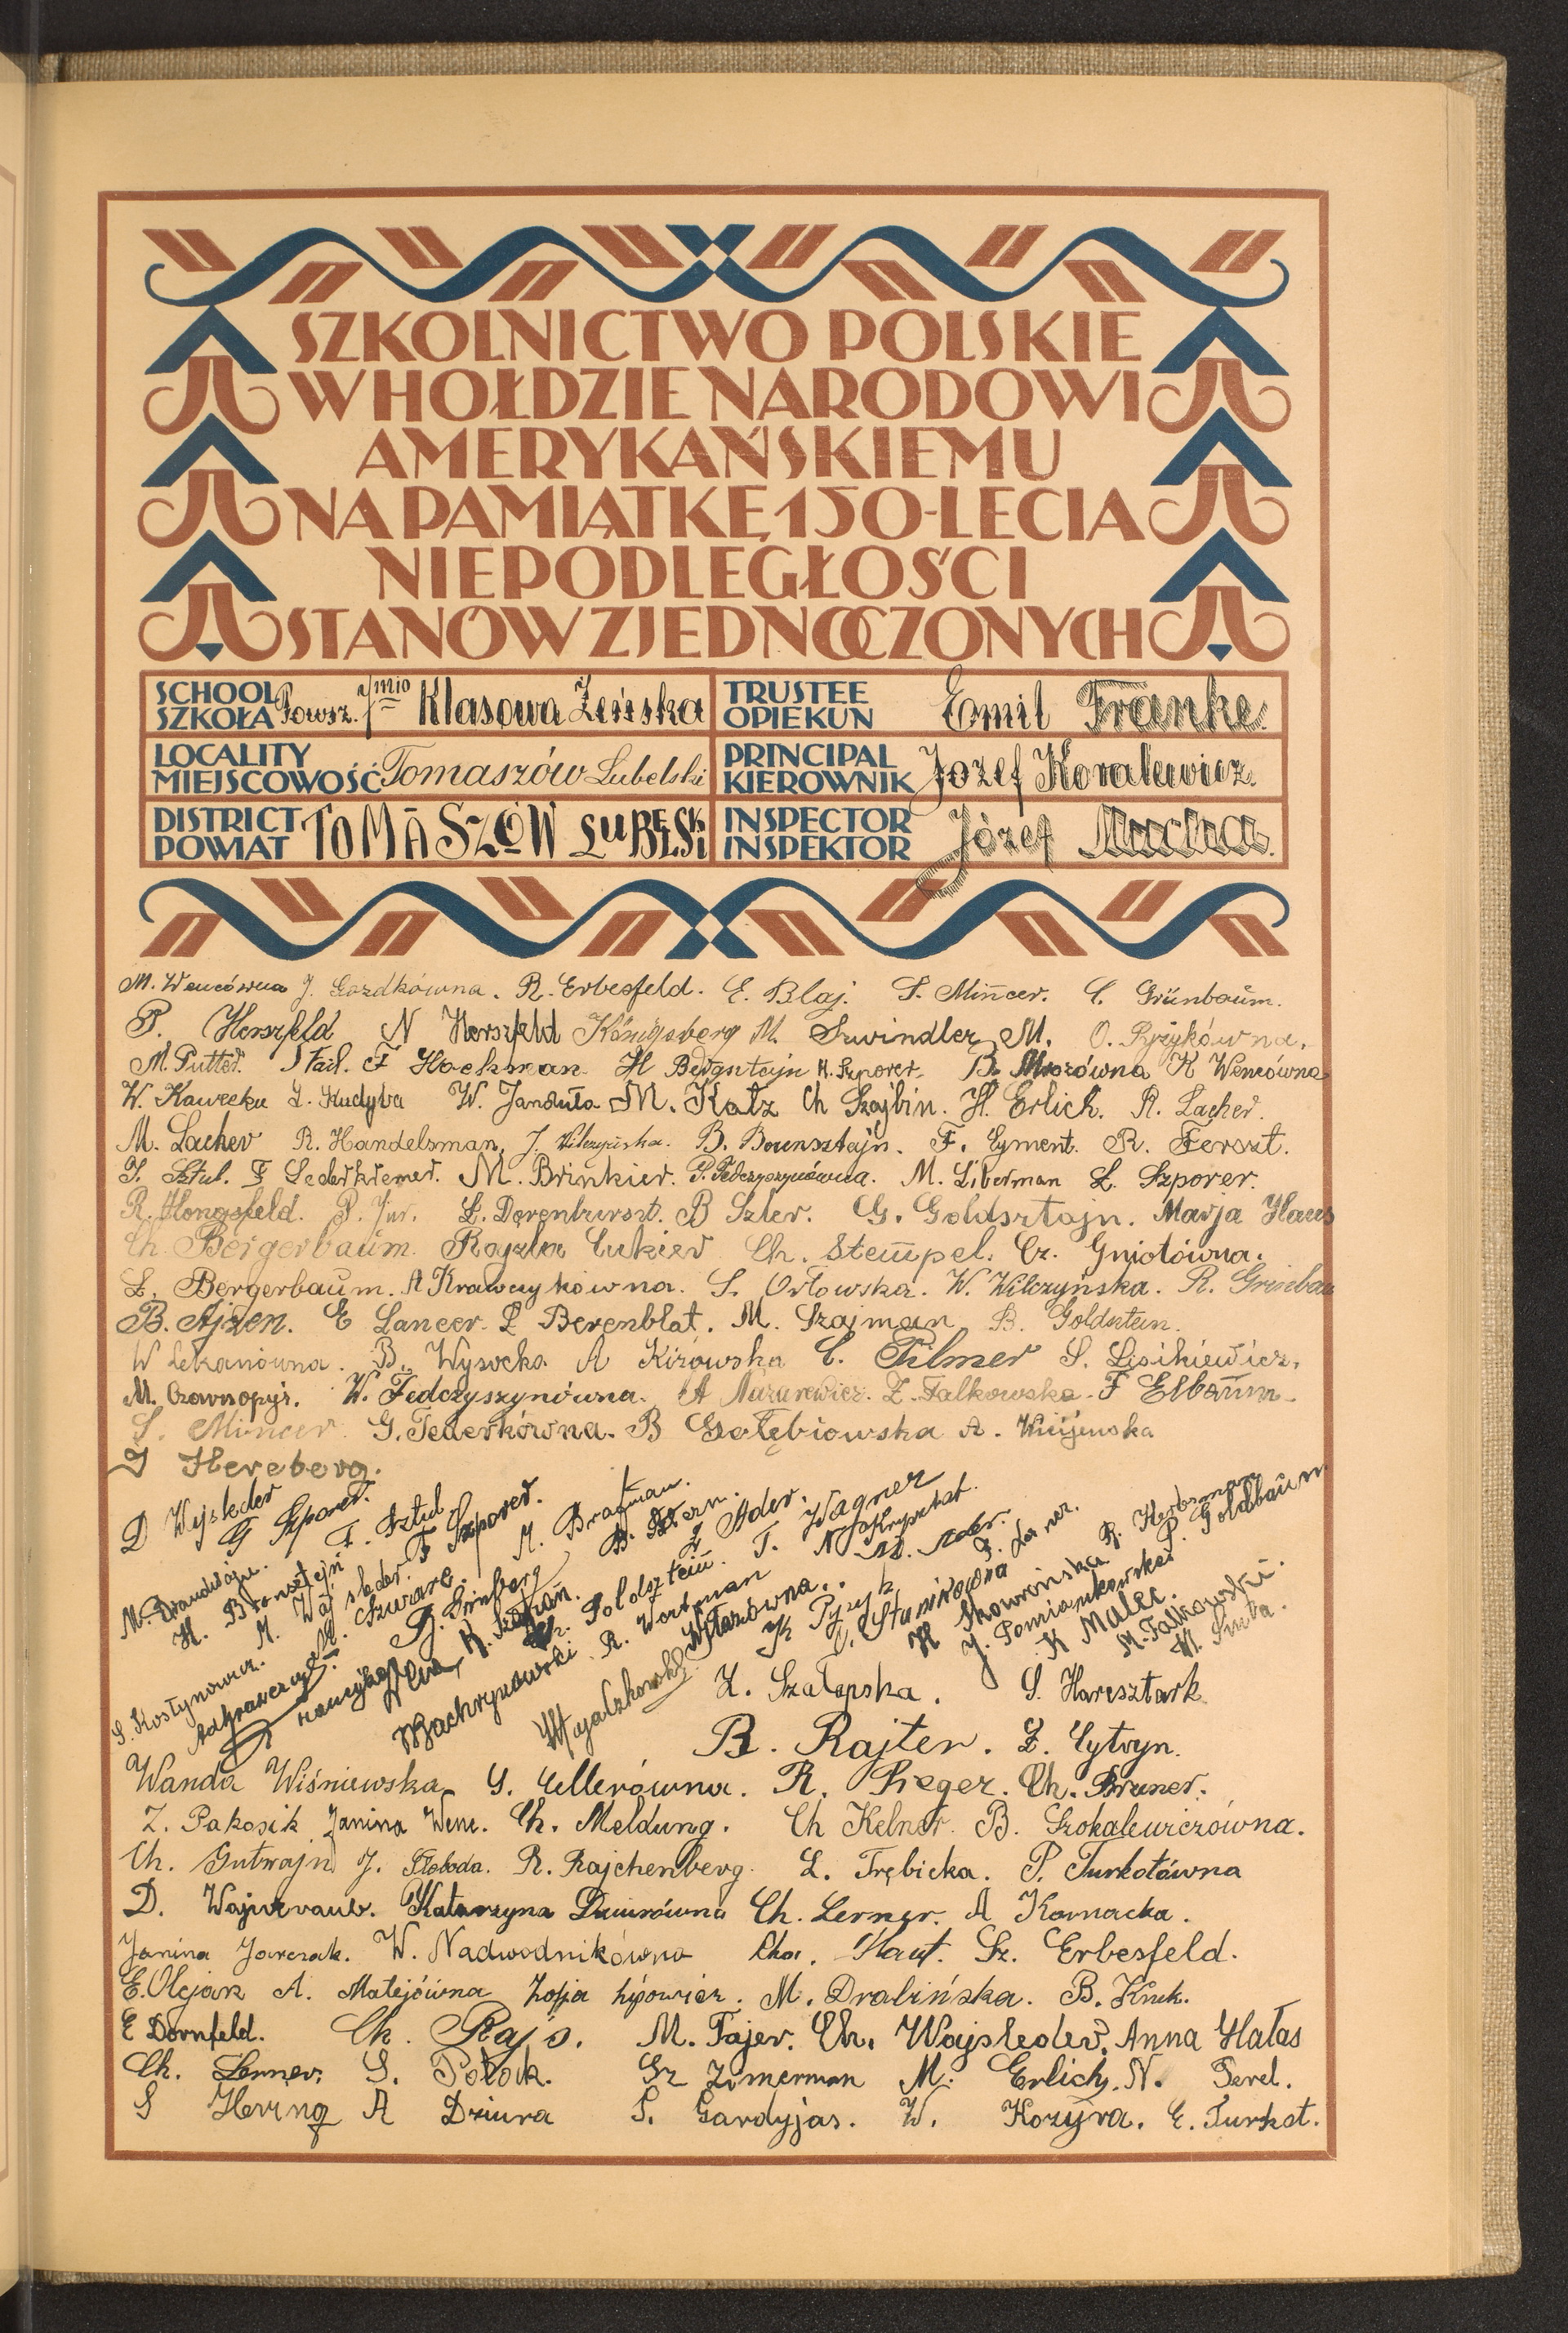 SZKOLNICTWO POLSKIE
W HOŁDZIE NARODOWI
AMERYKAŃSKIEMU
NA PAMIĄTKĘ 150-LECIA
NIEPODLEGŁOŚCI
STANÓW ZJEDNOCZONYCH
SCHOOL SZKOŁA Powsz. 7mio Klasowa Żeńska
TRUSTEE OPIEKUN Emil Franke.
LOCALITY MIEJSCOWOŚĆ Tomaszów Lubelski
PRINCIPAL KIEROWNIK Józef Kowalewicz.
DISTRICT POWIAT TOMASZÓW LUBELSKI
INSPECTOR INSPEKTOR Józef Mucha.
M. Wencówna J. Gozdkówna. R. Erbesfeld. E. Blaj. S. Mincer. C. Grünbaum.
P. Herszfeld N Herszfeld Königsberg M. Szwindler M. O. Pyzykówna.
M. Putter. F Hochman H Bergsztajn H. Szporer. B. Mrozówna K Wencówna
W. Kawecka L. Kudyba W. Janduła M. Katz Ch Szajbin. H. Erlich. R. Lacher.
M. Lacher R. Handelsman. J. Wilczyńska. B. Bornsztajn. F. Eyment. R. Ferszt.
J. Sztul. F Lederkremer. M. Brinkier. P. Fedczyszynówna. M. Liberman L. Szporer.
R. Hongsfeld. P. Jur. L. Derenbruszt. B Szler. G. Goldsztajn. Marja Haus
Ch. Bergerbaum. Rayzla Cukier Ch. Stempel. Cz. Gniotówna.
L. Bergerbaum. A Krawczykówna. S. Orłowska. W. Wilczyńska. R.
B. Ajzen. E Lancer. L Berenblat. M. Szajman B. Goldstein.
W Lekanówna. B. Wysocka A Kiżowska C. Filmer S. Lisikiewicz.
M. Czarnopyś. W. Fedczyszynówna. A Mazurewicz. Z. Falkowska. F Elbaum.
S. Mincer. G. Federkówna. B Gołębiowska A.
J Herzberg.
D Wajsleder G Szporer. F. Sztul F Szporer. M. Brafman. B. Stern. Z Ader. T. Wagner N Krysztal.
H. Bronsztejn M. Wajsleder. M. Szwarc. B. Grinberg R. Kagan. Ch. Goldsztein. R. Wortman M. Ader. F. Lerner. R. Herbsman P. Goldbaum
S. Kostynowicz. K Pyzyk O. Stanikówna H Skowrońska J. Pomiankowska K Malec. M. Falkowski. M. Smuta.
Z. Szałapska. S. Haresztark
B. Rajter. L. Cytryn.
Wanda Wiśniewska G. Cellerówna. R. Pieger. Ch. Bruner.
Z. Pakosik Janina Wenc. Ch. Meldung. Ch Kelner. B. Szokalewiczówna.
Ch. Gutwajn J. Słoboda. R. Rajchenberg L. Trębicka. P. Turkotówna
D. Katarzyna Dziurówna Ch. Lerner. A Kornacka.
Janina Jarczak. W. Nadwodnikówna Cha. Haut. Sz. Erbesfeld.
E. Olejarz A. Matejówna Zofja Lipowicz. M. Dralińska. B. Kruk.
E Dornfeld. Ch. Rajs. M. Fajer. Ch. Wajsleder. Anna Hałas
Ch. Lerner. S. Potok. Sz Zimerman M. Erlich. N. Perel.
S Hering A Dziura S. Gardyjas. W. Kozyra. E. Turkot.